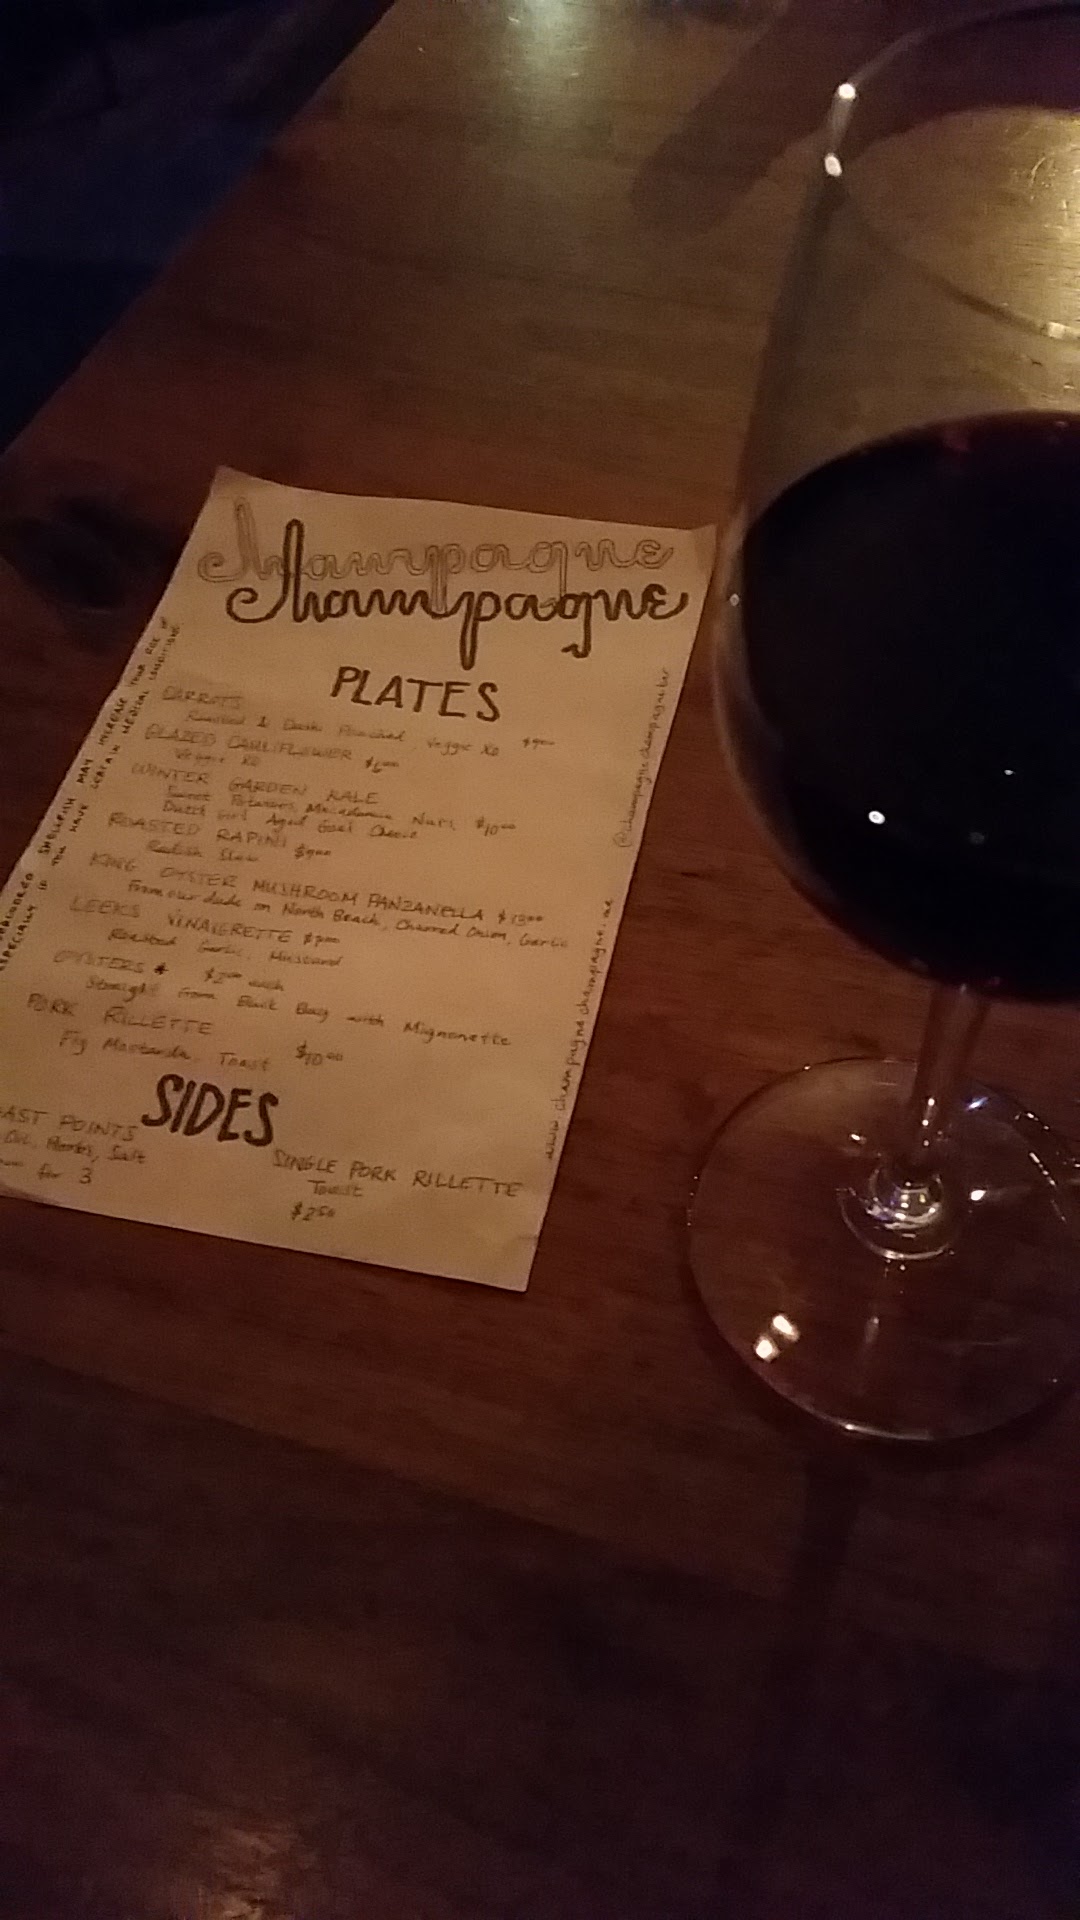 Champagne
Champagne
PLATES
CARROTS
Roasted & Veggie XO
GLAZED CAULIFLOWER
Veggie XO
WINTER GARDEN KALE
Sweet Potatoes, Macadamia Nuts, $10⁰⁰
Dutch Girl Aged Goat Cheese
ROASTED RAPINI
Radish Slaw
KING OYSTER MUSHROOM PANZANELLA $13⁰⁰
From our dude on North Beach, Charred Onion, Garlic
LEEKS VINAIGRETTE
Roasted Garlic, Mustard
OYSTERS * $2⁰⁰ each
Straight from Back Bay with Mignonette
PORK RILLETTE
Fig Mostarda, Toast $10⁰⁰
SIDES
AST POINTS
Oil, Herbs, Salt
for 3
SINGLE PORK RILLETTE
Toast
$2⁵⁰
SHELLFISH MAY INCREASE YOUR RISK OF
ESPECIALLY IF YOU HAVE CERTAIN MEDICAL CONDITIONS
@champagnechampagnebar
www.champagnechampagne.me